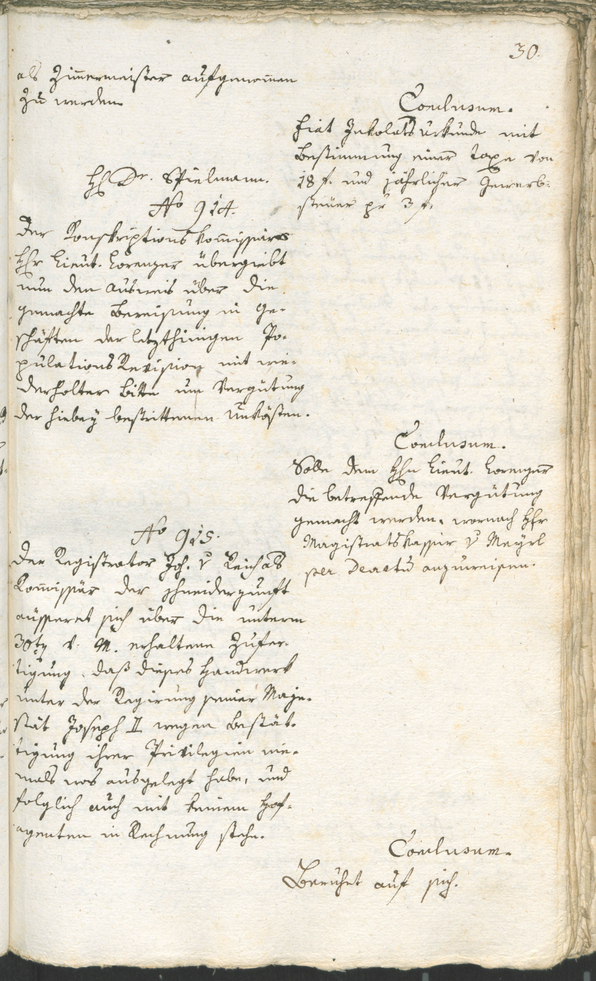 30.
als Zimmermeister aufgenommen
zu werden
Conclusum.
Fiat Inkolats Urkunde mit
Bestimmung einer Taxe von
18 f. und jährlicher Gewerb-
steuer pr 3 f.
H. Dr. Spielmann.
No 914.
Der Konskriptions Kommissär
Hr Lieut. Lorenzer übergiebt
nun den Ausweis über die
gemachte Bereisung in Ge-
schäften der letzthinigen Po-
pulations Revision mit wie-
derholter Bitte um Vergütung
der hiebey bestrittenen Unkösten.
Conclusum.
Solle dem Hn Lieut. Lorenzer
die betreffende Vergütung
gemacht werden, wornach Hr
Magistratskassir v Meyrl
per Decretu anzuweisen.
No 915.
Der Registrator Joh. v
Kommissär der Schneiderzunft
äusseret sich über die unterm
30ty v. M. erhaltene Zufer-
tigung, daß dieses Handwerk
unter der Regirung seiner Maje-
stät Joseph II wegen Bestät-
tigung ihrer Privilegien nie-
mals was ausgelegt habe, und
folglich auch mit keinem Hof-
agenten in Rechnung stehe.
Conclusum.
Beruhet auf sich.